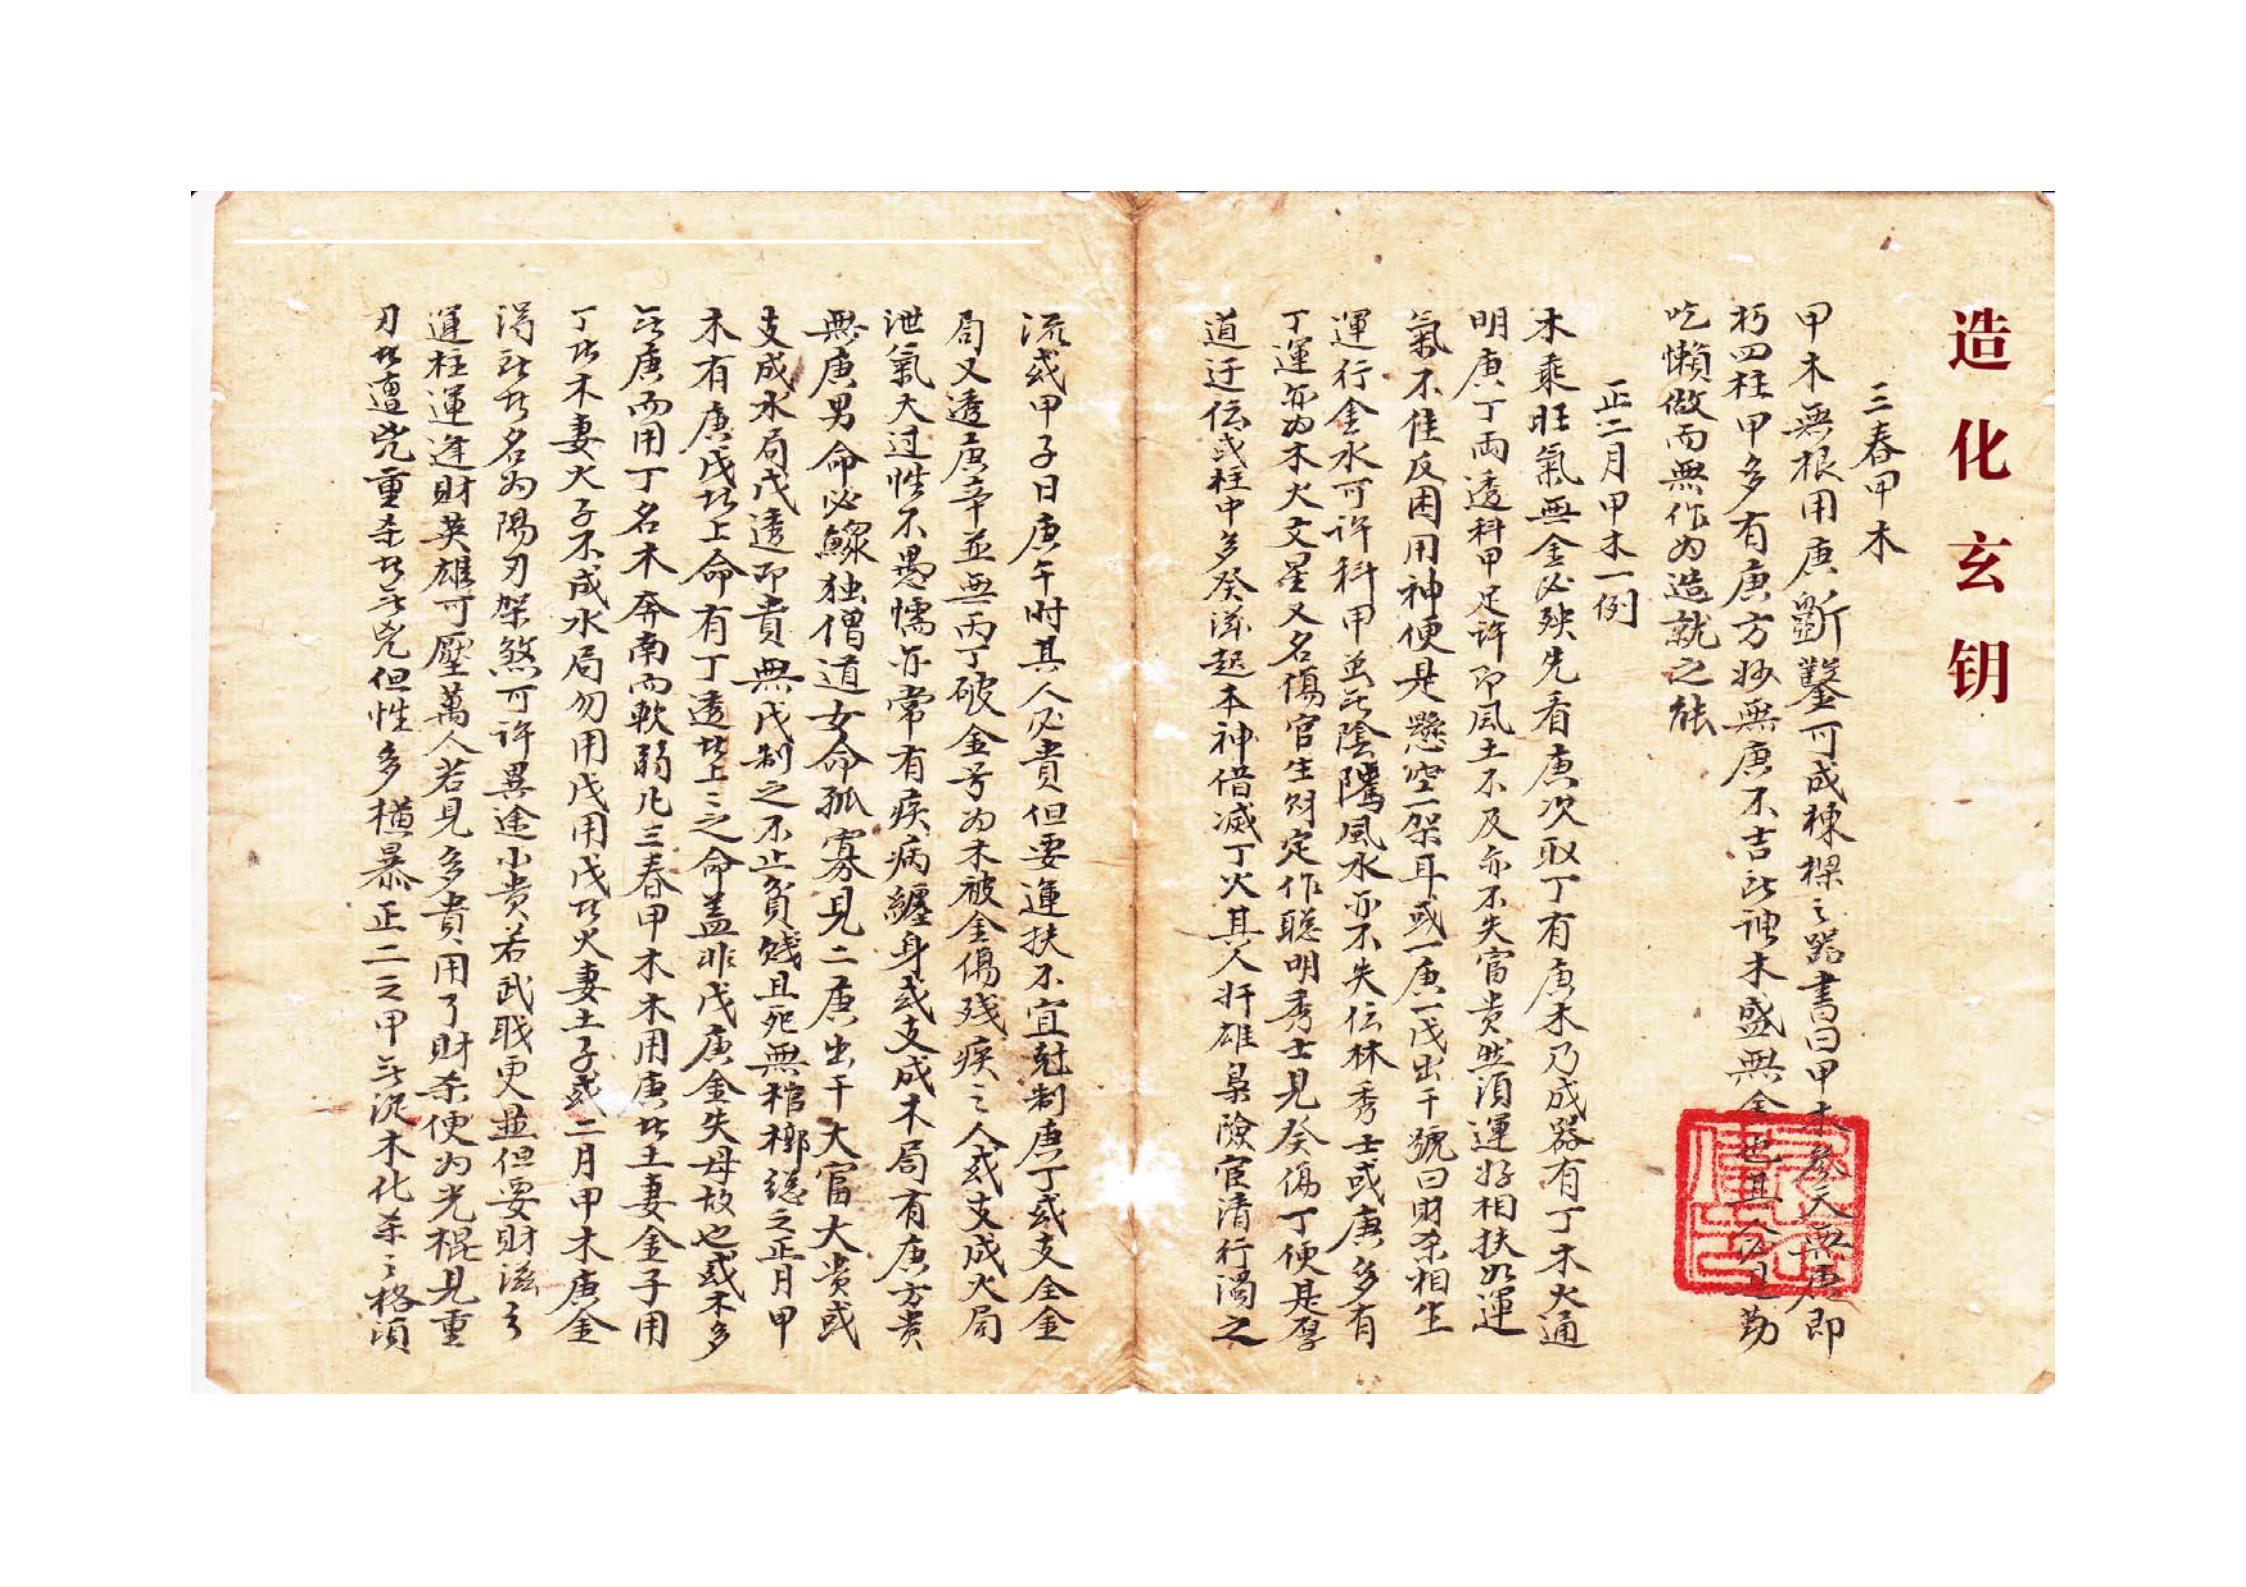 造化玄钥
三春甲木
甲木無根用庚斲鑿可成棟樑之器書曰甲木參天無庚即
朽四柱甲多有庚方妙無庚不吉此神木盛無金也且勤
吃懶做而無作为造就之能
正二月甲木一例
木乘旺氣無金必殃先看庚次取丁有庚木乃成器有丁木火通
明庚丁両透科甲足許即風土不及亦不失富贵然須運好相扶如運
氣不佳反困用神便是懸空一架耳或一庚一戊出干號曰財杀相生
運行金水可許科甲虽此陰隲風水亦不失伝林秀士或庚多有
丁運亦为木火文星又名傷官生財定作聪明秀士見癸傷丁便是厚
道迂伝或柱中多癸滋起本神借滅丁火其人奸雄梟險宦清行濁之
流或甲子日庚午时其人必貴但要運扶不宜尅制庚丁或支全金
局又透庚辛並無丙丁破金号为木被金傷残疾之人或支成火局
泄氣大过性不愚懦亦常有疾病纏身或支成木局有庚方贵
無庚男命必鰥独僧道女命孤寡見二庚出干大富大贵或
支成水局戊透即貴無戊制之不止貧贱且死無棺槨総之正月甲
木有庚戊者上命有丁透者上之命盖非戊庚金失母故也或木多
无庚而用丁名木奔南而軟弱凡三春甲木木用庚者土妻金子用
丁者木妻火子不成水局勿用戊用戊者火妻土子或二月甲木庚金
得此者名为陽刃架煞可許異途小贵若武职更並但要財滋
運柱運逢財英雄可壓萬人若見多貴用了財杀便为光棍見重
刃者遭兇重杀者无兇但性多横暴正二之甲无従木化杀之格須